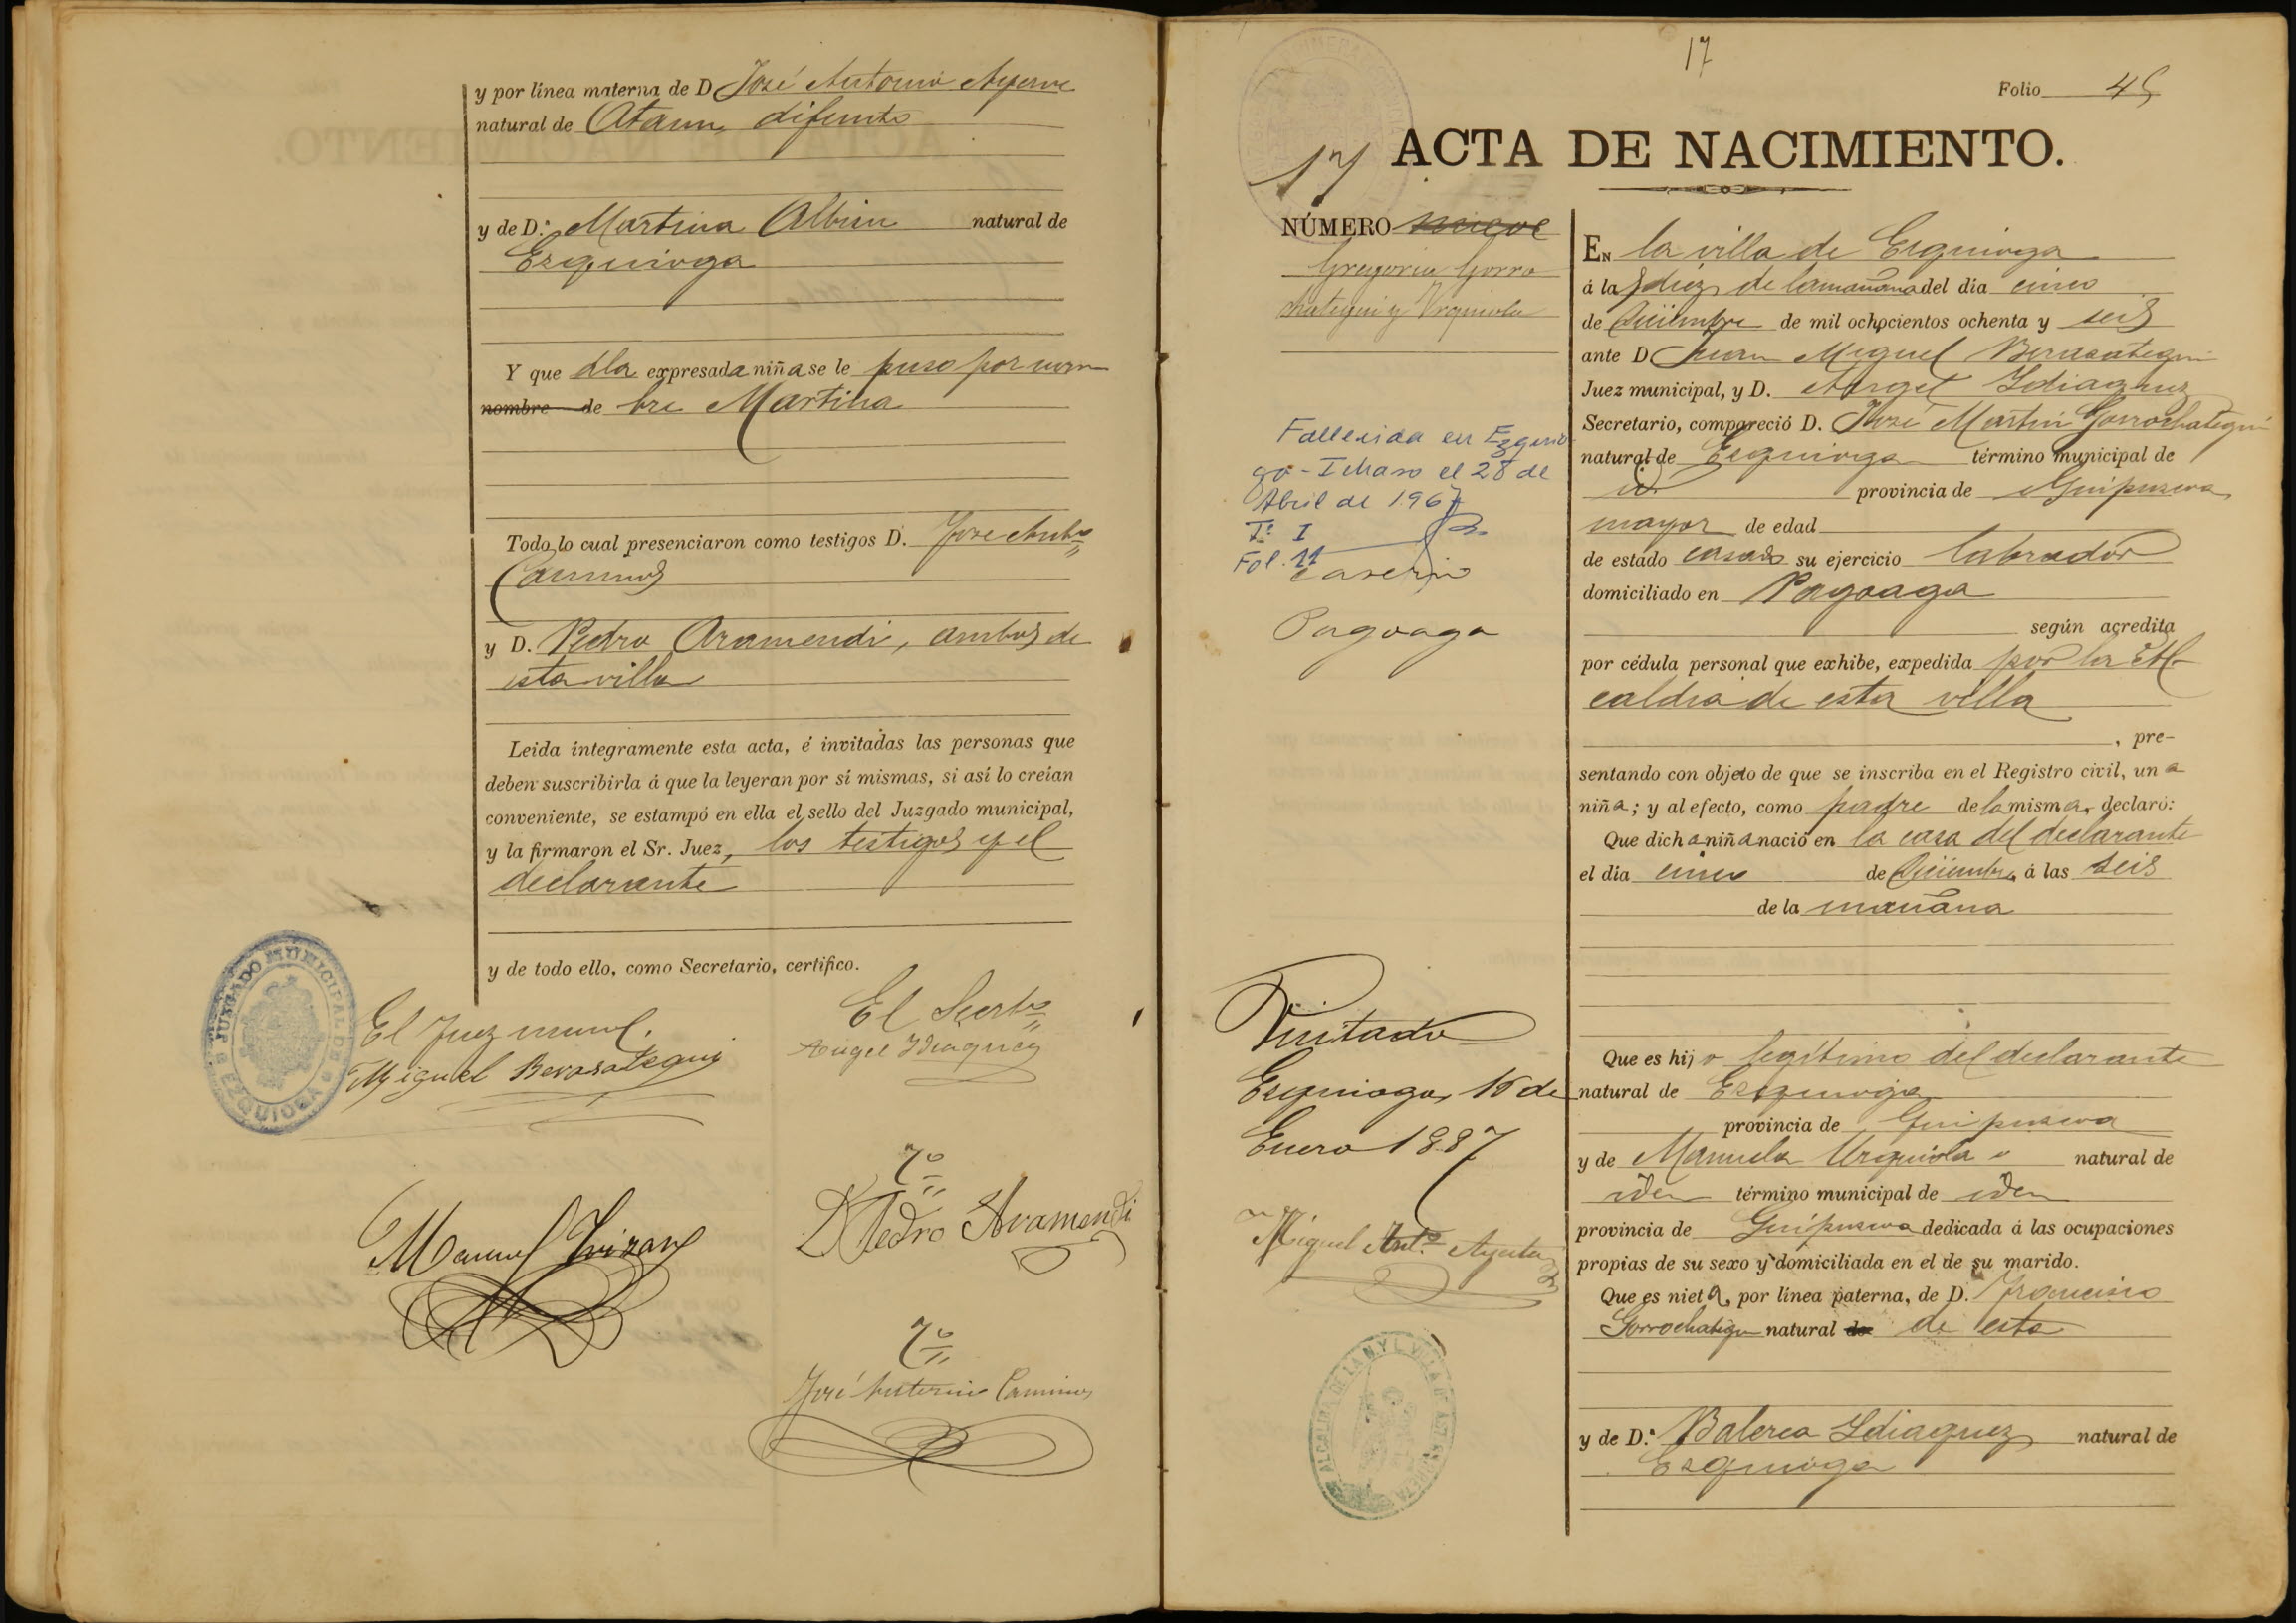 y por línea materna de D José Antonio
natural de Ataun, difunto
y de D.ª Martina Albisu natural de
Ezquioga
Y que á la expresada niña se le puso por nom
nombre de bre Martina
Todo lo cual presenciaron como testigos D. José Antº
Caminos
y D. Pedro Aramendi, ambos de
esta villa
Leida íntegramente esta acta, é invitadas las personas que
deben suscribirla á que la leyeran por sí mismas, si así lo creían
conveniente, se estampó en ella el sello del Juzgado municipal,
y la firmaron el Sr. Juez, los testigos y el
declarante
y de todo ello, como Secretario, certifico.
JUZGADO MUNICIPAL DE EZQUIOGA
El Juez munl.
Miguel Berasategui
El Secrtº
Angel Ydiaquez
Tº
D Pedro Aramendi
Manuel
Tº
José Antonio Caminos
17
Folio 45
17
ACTA DE NACIMIENTO.
NÚMERO nueve
Gregoria Gorro
chategui y Urquiola
Fallecida en Ezquio
ga-Ichaso el 28 de
Abril de 1967
Tº I
Fol. 11
Caserio
Pagoaga
Visitado
Ezquioga, 15 de
Enero 1887
Miguel Antº
ALCALDIA DE LA N. Y L. VILLA DE
EN la villa de Ezquioga
á las diez de la mañana del dia cinco
de Diciembre de mil ochocientos ochenta y seis
ante D Juan Miguel Berasategui
Juez municipal, y D. Angel Ydiaquez
Secretario, compareció D. José Martin Gorrochategui
natural de Ezquioga término municipal de
id provincia de Guipuzcoa,
mayor de edad
de estado casado su ejercicio labrador
domiciliado en Pagoaga
según acredita
por cédula personal que exhibe, expedida por la Al-
caldia de esta villa
, pre-
sentando con objeto de que se inscriba en el Registro civil, una
niña; y al efecto, como padre de la misma, declaró:
Que dicha niña nació en la casa del declarante
el dia cinco de Diciembre, á las seis
de la mañana
Que es hijo legítimo del declarante
natural de Ezquioga
provincia de Guipuzcoa
y de Manuela Urquiola natural de
iden término municipal de iden
provincia de Guipuzcoa dedicada á las ocupaciones
propias de su sexo y domiciliada en el de su marido.
Que es nieta, por línea paterna, de D. Francisco
Gorrochategui natural de de esta
y de D.ª Balerea Ydiaquez natural de
Ezquioga